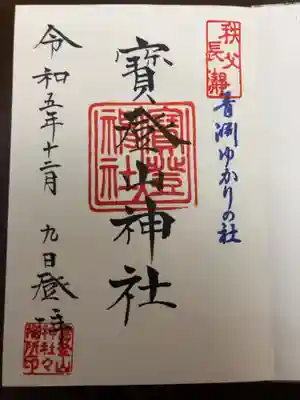 秩父
長瀞
青淵ゆかりの社
寳登山神社
寳登山神社
令和五年十二月九日登拝
寳登山
神社々
務所印